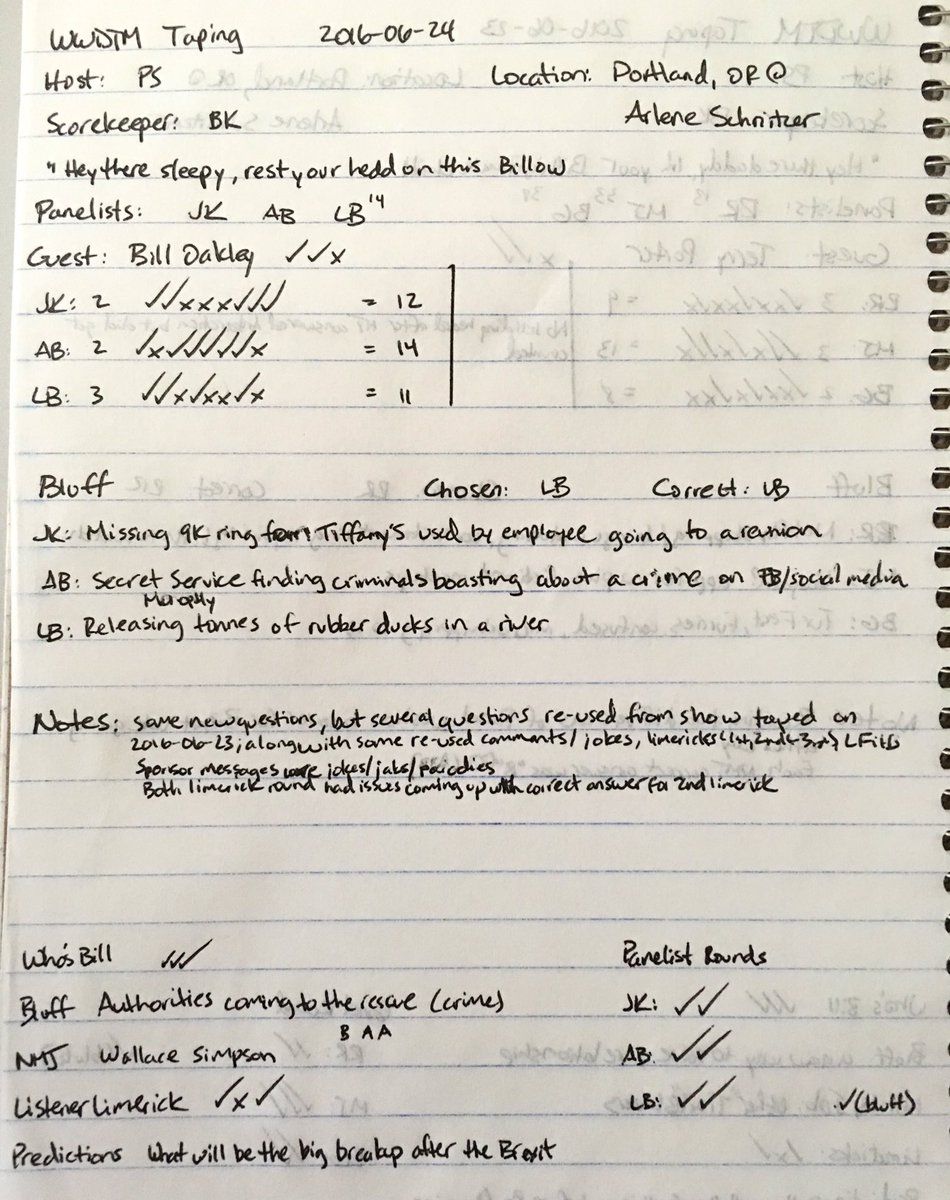 WWDTM Taping 2016-06-24
Host: PS Location: Portland, OR @
Scorekeeper: BK Arlene Schnitzer
"Hey there sleepy, rest your hedd on this Billow
Panelists: JK AB LB'14
Guest: Bill Oakley ✓✓x
JK: 2 ✓✓xxx✓✓✓ = 12
AB: 2 ✓x✓✓✓✓✓x = 14
LB: 3 ✓✓x✓xx✓x = 11
Bluff Chosen: LB Correct: LB
JK: Missing 9K ring from Tiffany's used by employee going to a reunion
AB: Secret Service finding criminals boasting about a crime on FB/social media
LB: Releasing tonnes of rubber ducks in a river
Notes: some new questions, but several questions re-used from show taped on
2016-06-23; along with some re-used comments/jokes, limericks (1st, 2nd & 3rd), LFitB
Sponsor messages were jokes/jabs/parodies
Both limerick round had issues coming up with correct answer for 2nd limerick
Who's Bill ✓✓✓ Panelist Rounds
Bluff Authorities coming to the rescue (crime) JK: ✓✓
B A A
NMJ Wallace Simpson AB: ✓✓
Listener Limerick ✓x✓ LB: ✓✓ ✓(bluff)
Predictions What will be the big breakup after the Brexit